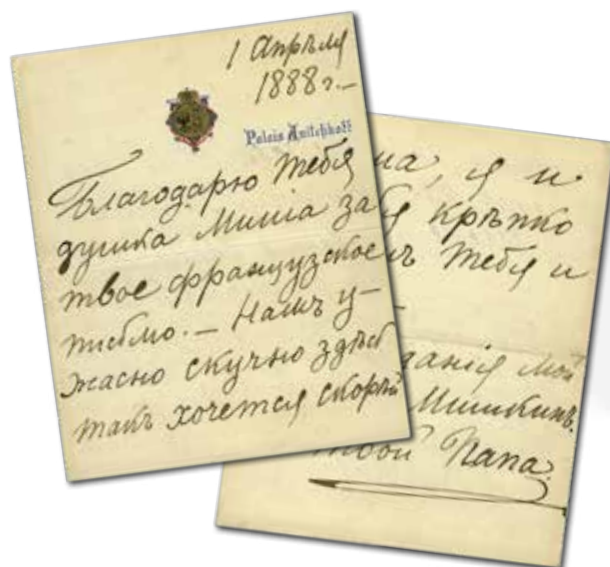 1 Апрѣля
1888 г.—
Palais Anitchkoff
Благодарю тебя
душка Миша за
твое французское
письмо.— Намъ у-
жасно скучно здѣсь
такъ хочется скорѣй
на, я и
крѣпко
тебя и
данія мой
Мишкинъ.
твой Папа.